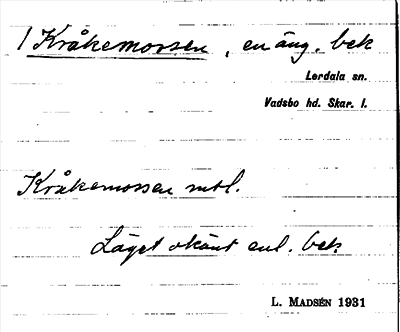 1 Kråkemossen, en äng. bek
Lerdala sn.
Vadsbo hd. Skar. l.
Kråkemossen mtl.
Läget okänt enl. bek.
L. MADSÉN 1931